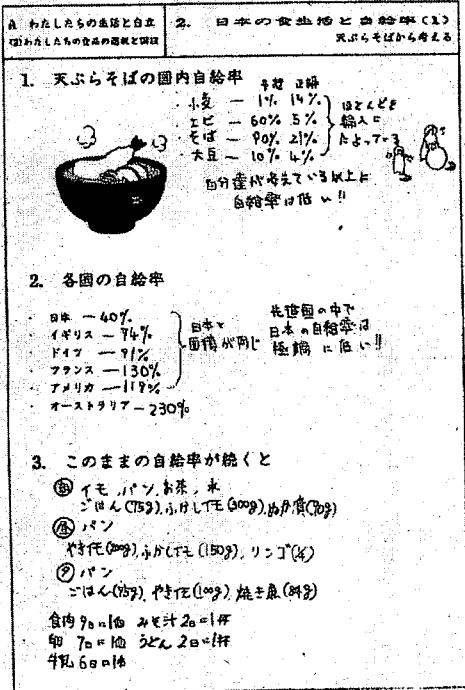 A わたしたちの生活と自立
(2)わたしたちの食品の選択と
2. 日本の食生活と自給率(1)
天ぷらそばから考える
1. 天ぷらそばの国内自給率
予想 正解
・小麦 ― 1% 14%
・エビ ― 60% 5%
・そば ― 90% 21%
・大豆 ― 10% 4%
ほとんどを
輸入に
たよっている
自分達が考えている以上に
自給率は低い!!
2. 各国の自給率
・日本 ― 40%
・イギリス ― 74%
・ドイツ ― 91%
・フランス ― 130%
・アメリカ ― 119%
・オーストラリア ― 230%
日本と
面積が同じ
先進国の中で
日本の自給率は
極端に低い!!
3. このままの自給率が続くと
朝 イモ、パン、お茶、水
ごはん(75g)、ふかしイモ(300g)、ぬか漬(90g)
昼 パン
やきイモ(200g)、ふかしイモ(150g)、リンゴ(¼)
夕 パン
ごはん(75g)、やきイモ(100g)、焼き魚(84g)
食肉 9日に1食 みそ汁 2日に1杯
卵 7日に1個 うどん 2日に1杯
牛乳 6日に1杯